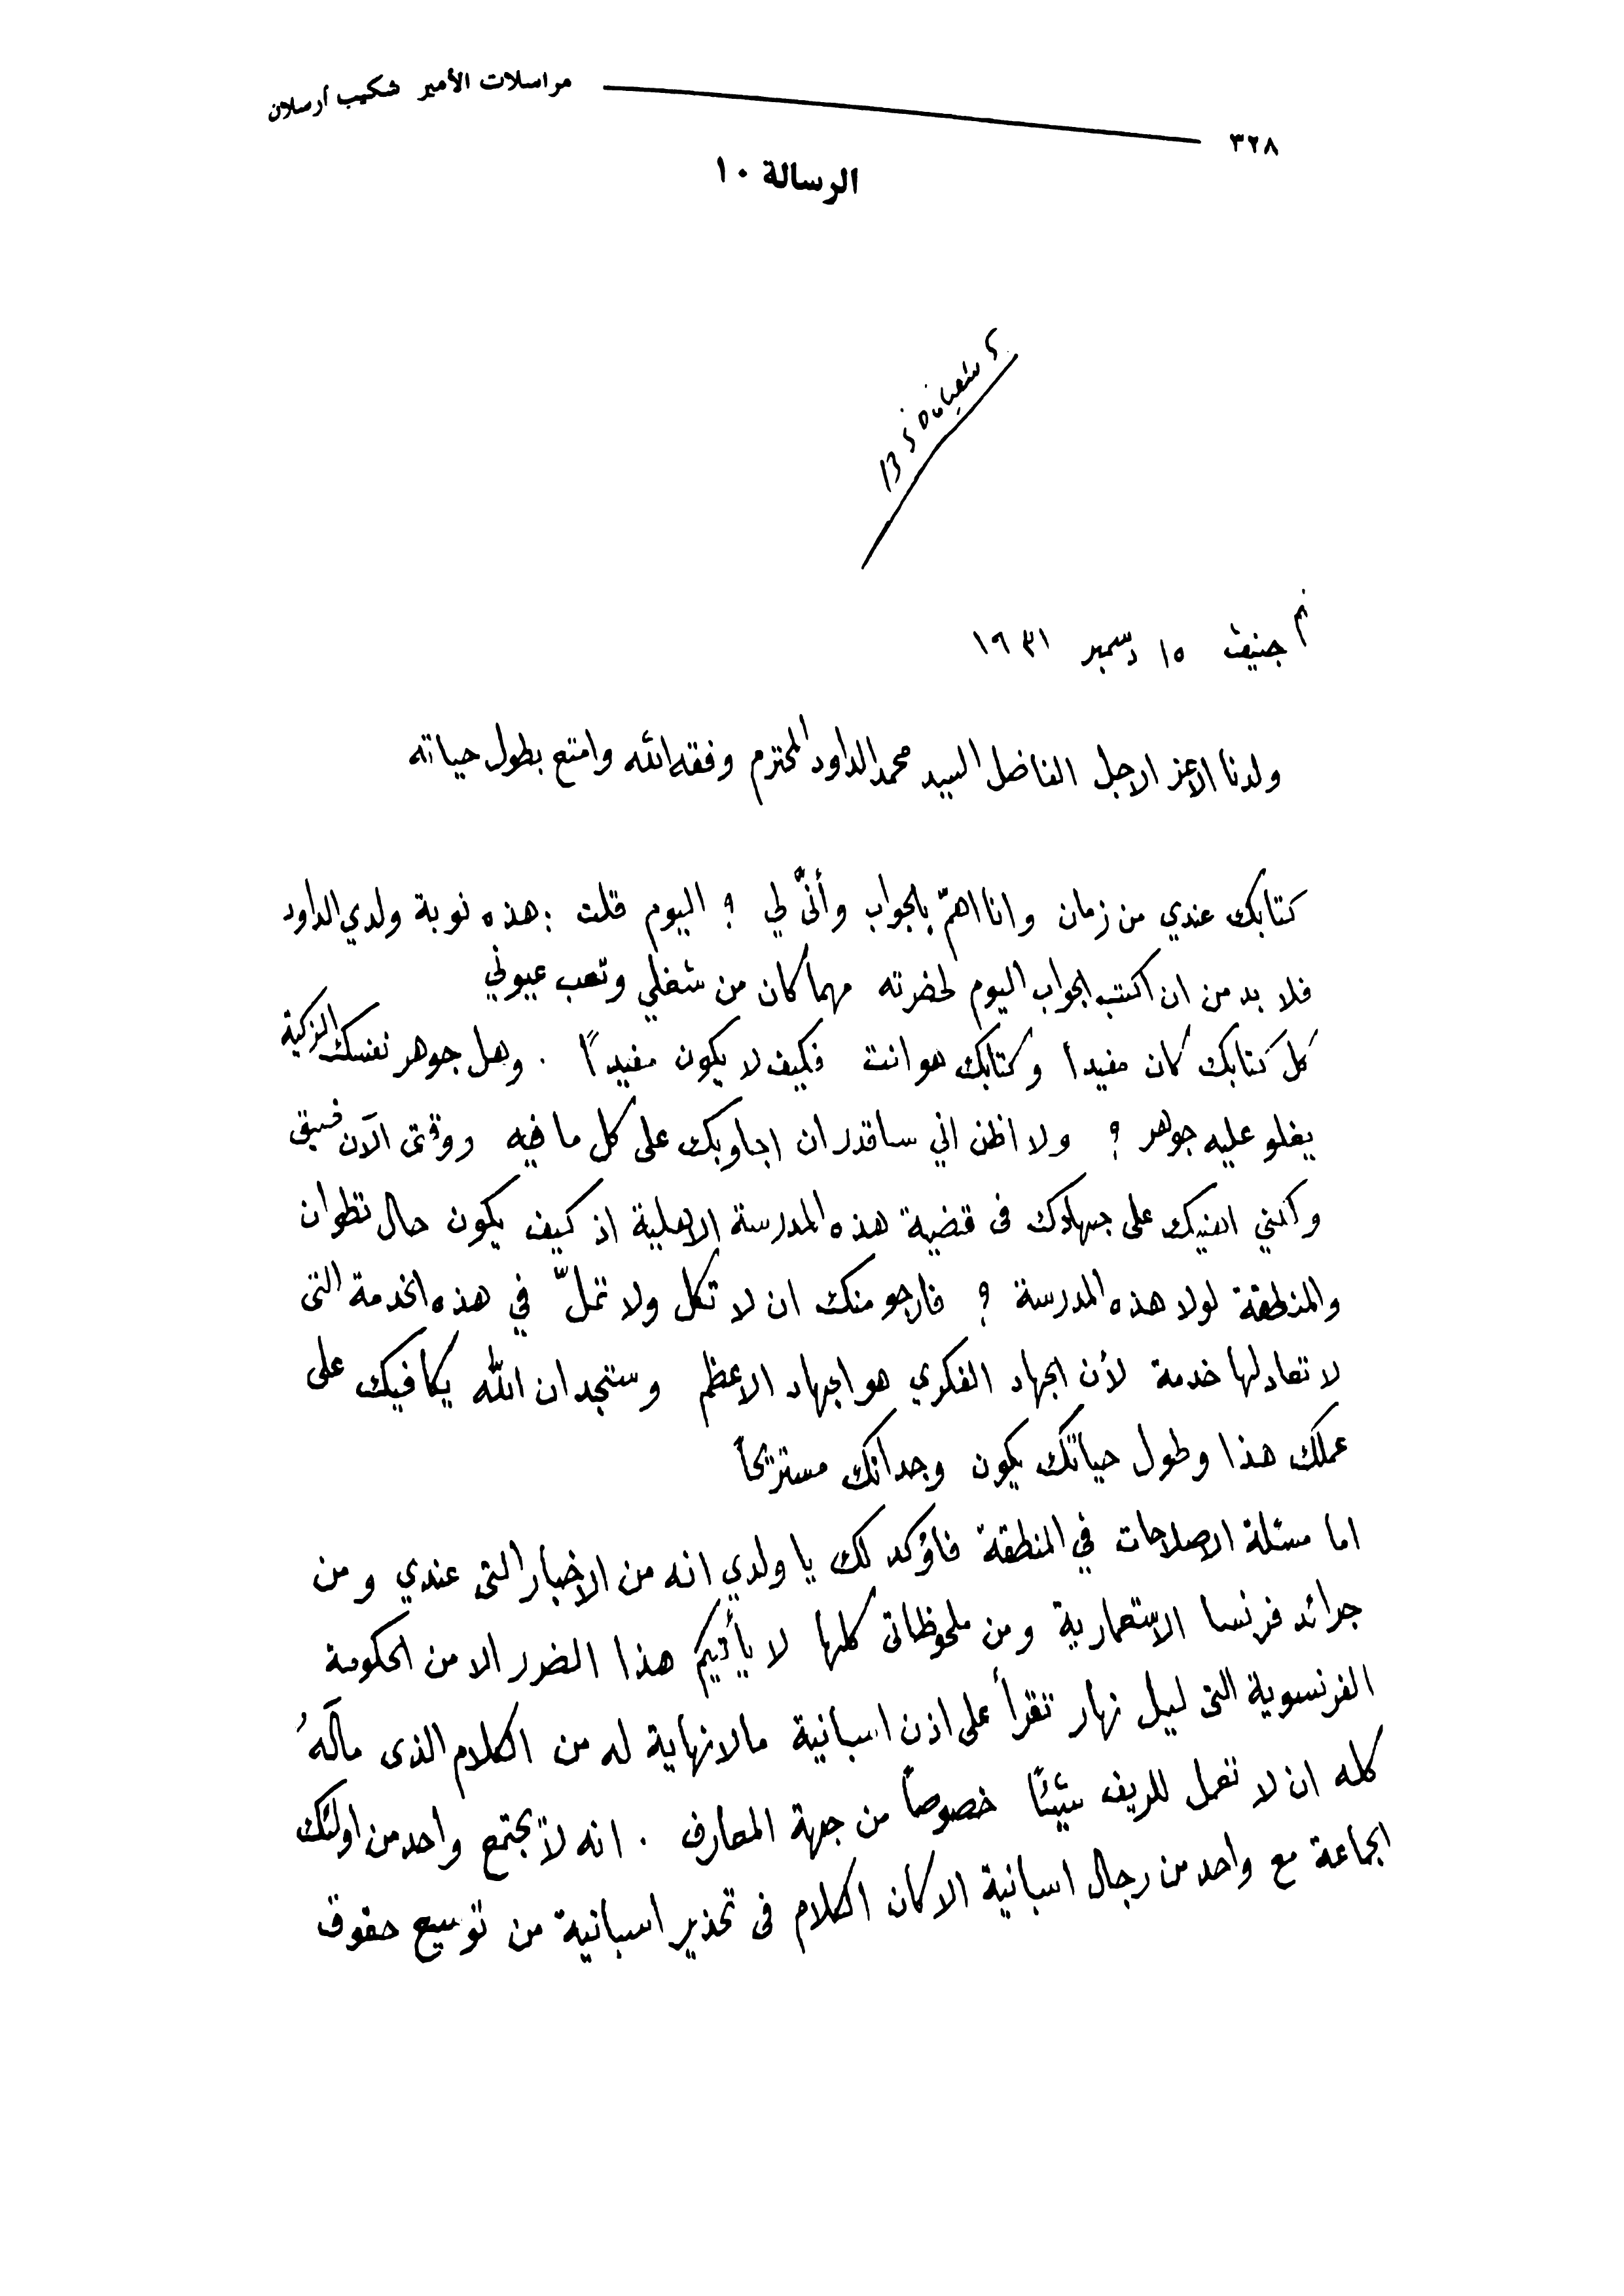 ٣٢٨ مراسلات الأمير شكيب أرسلان
الرسالة ١٠
شعبان
جنيف ١٥ دسمبر ١٩٣١
ولدنا الاعز الاجل الفاضل السيد محمد الداود المحترم وفقه الله وامتع بطول حياته
كتابك عندي من زمان وانا اهمّ بالجواب وأنّى لي ؟ اليوم قلت : هذه نوبة ولدي الداود
فلا بد من ان اكتب الجواب اليوم لحضرته مهما كان من شغلي وتعب عيوني
كل كتابك كان مفيداً وكتابك هو انت فكيف لا يكون مفيداً . وهل جوهر نفسك الزكية
يغلو عليه جوهر ؟ ولا اظن اني ساقدر ان اجاوبك على كل ما فيه ووقتى الآن ضيق
ولكنني اهنيك على جهادك فى قضية هذه المدرسة الاهلية اذ كيف يكون حال تطوان
والمنطقة لولا هذه المدرسة ؟ فارجو منك ان لا تكل ولا تملّ في هذه الخدمة التى
لا تعادلها خدمة لأن الجهاد الفكري هو الجهاد الاعظم وستجد ان الله يكافيك على
عملك هذا وطول حياتك يكون وجدانك مستريحاً
اما مسئلة الاصلاحات في المنطقة فاؤكد لك يا ولدي انه من الاخبار التى عندي ومن
جرائد فرنسا الاستعمارية ومن ملحوظاتى كلها لا يأتيكم هذا الضرر الا من الحكومة
الفرنسوية التى ليل نهار تقرأ على اذن اسبانية مالا نهاية له من الكلام الذى مآله
كله ان لا تعمل للريف شيئاً خصوصاً من جهة المعارف . انه لا يجتمع واحد من اولئك
الجماعة مع واحد من رجال اسبانية الا كان الكلام فى تحذير اسبانية من توسيع حقوق